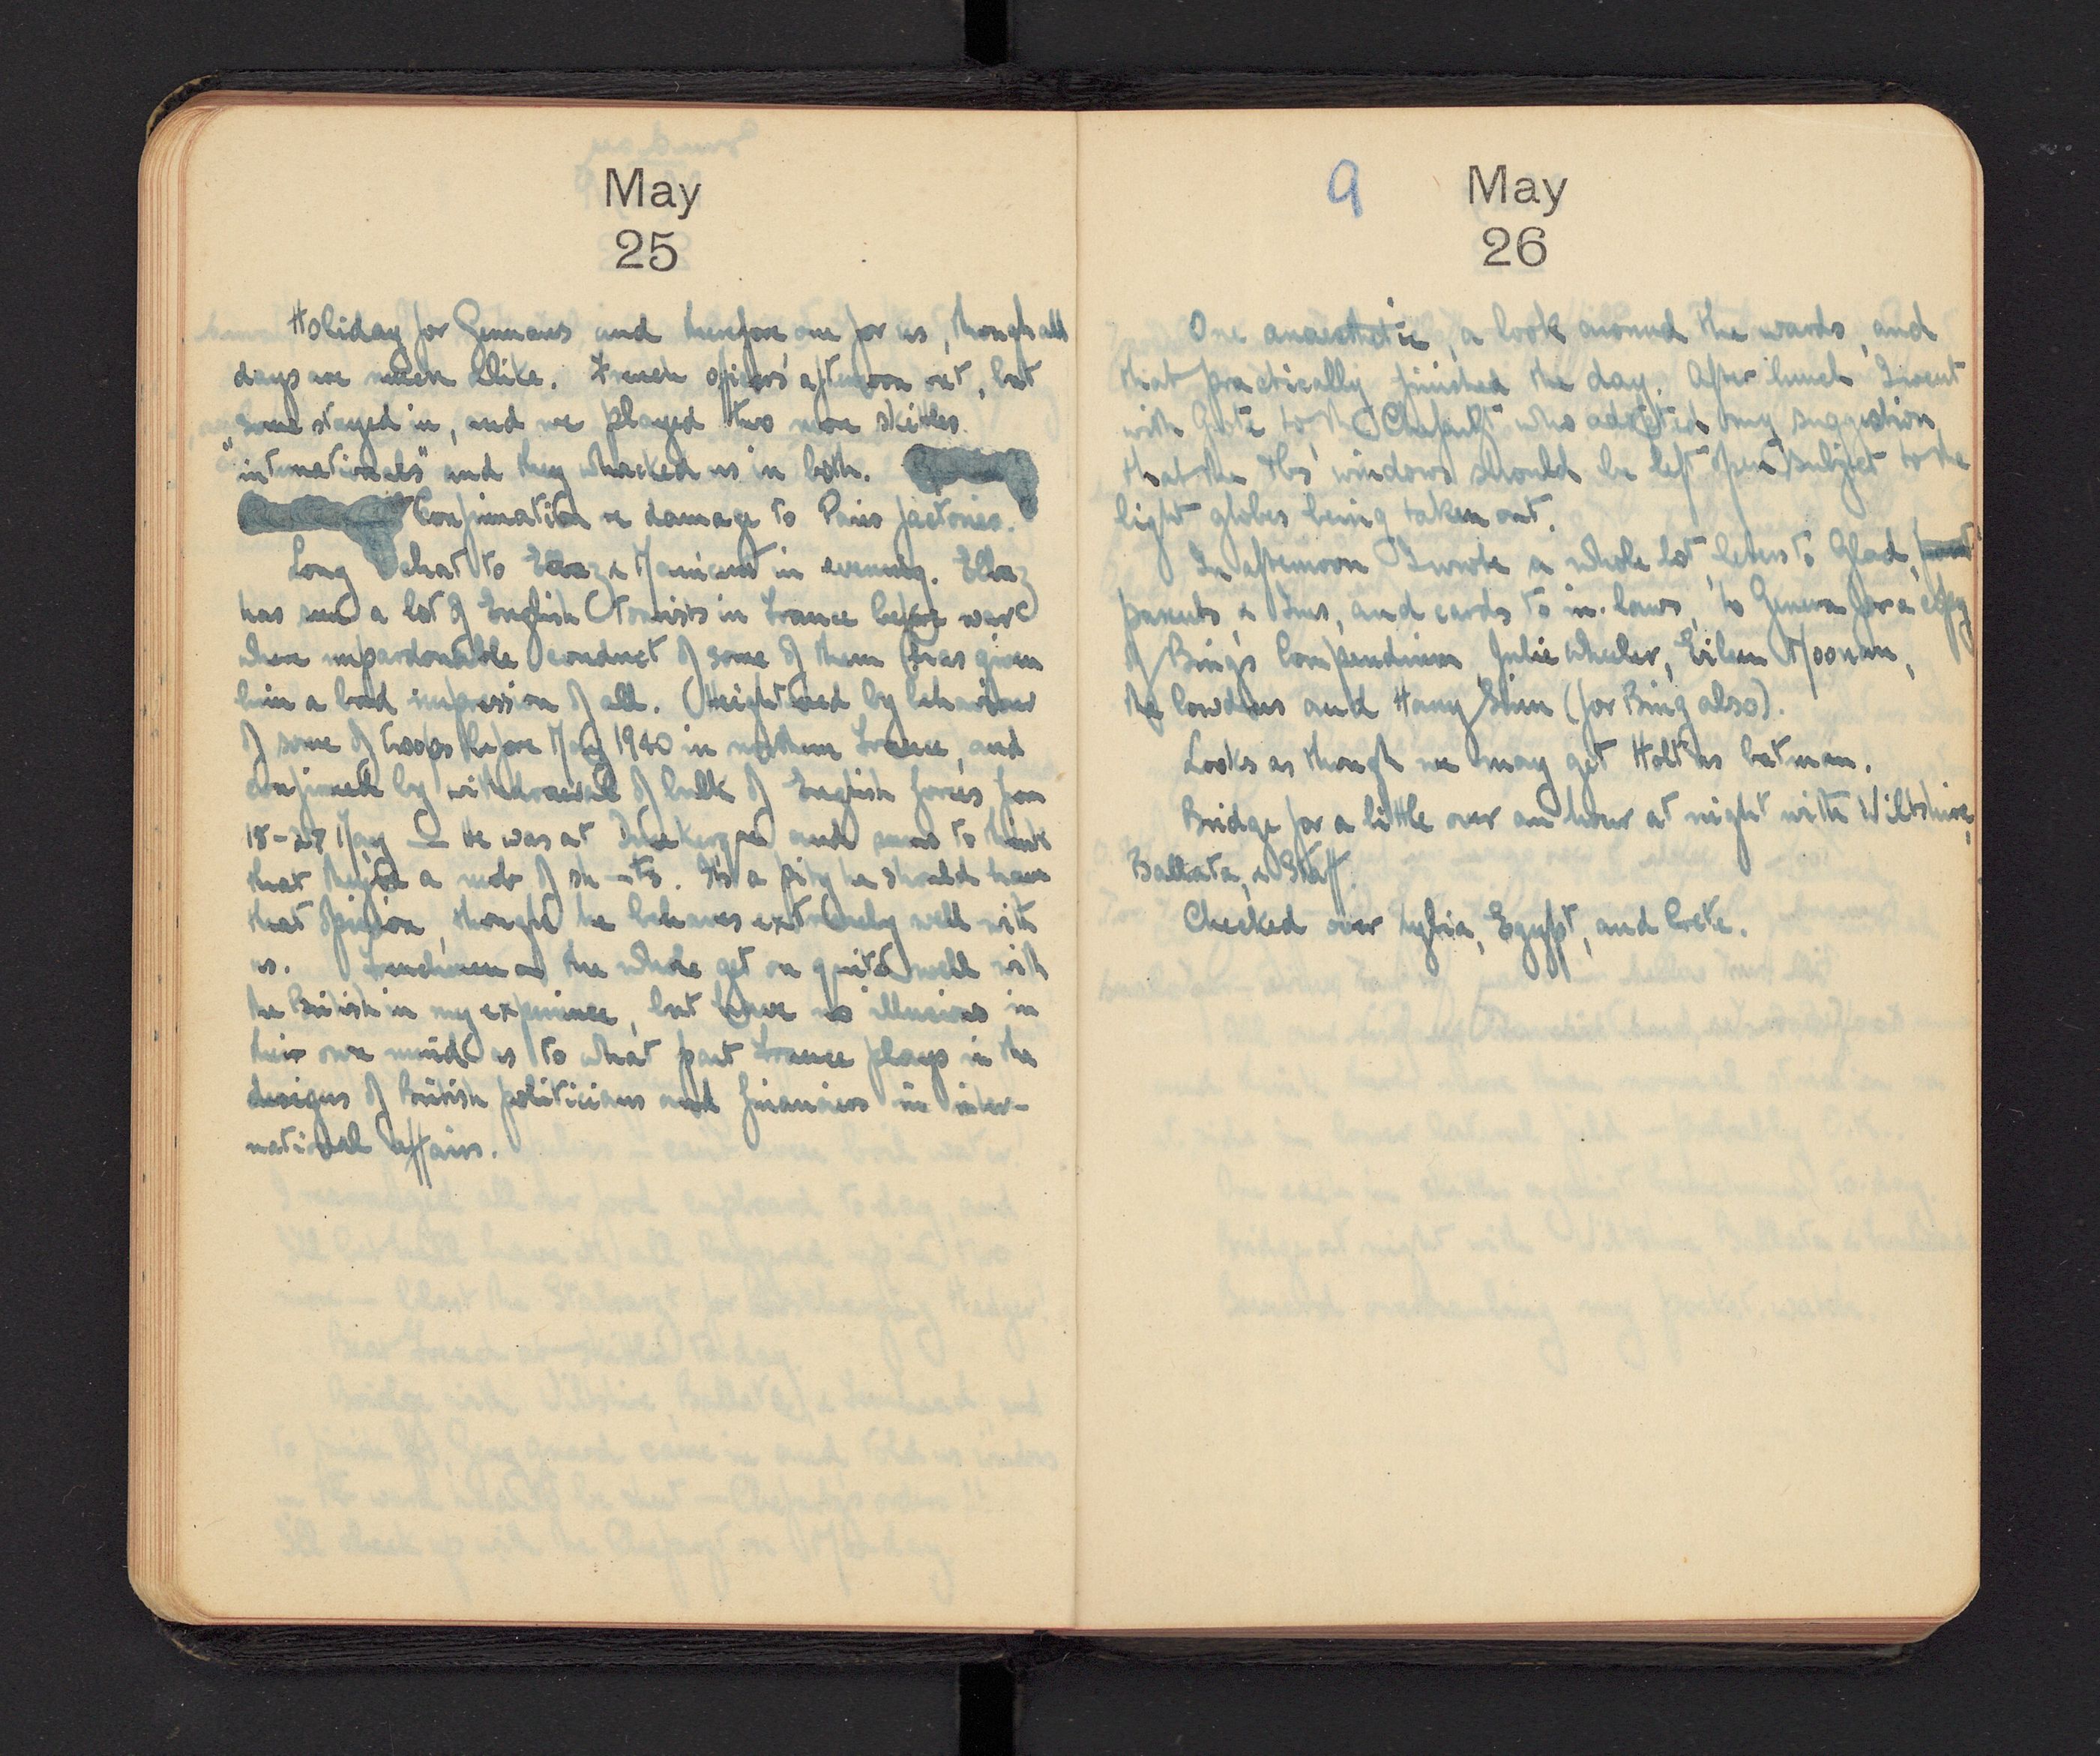 May
25
Holiday for Germans and therefore one for us, though all
days are much alike. French officers' afternoon out, but
some stayed in, and we played two more skittles
"internationals" and they whacked us in both.
Confirmation re damage to Paris factories.
Long chat to & in evening.
has seen a lot of English tourists in France before war
where unpardonable conduct of some of them has given
him a bad impression of all. Heightened by behaviour
of some of troops before May 1940 in northern France, and
confirmed by withdrawal of bulk of English forces from
18-27 May — He was at and seems to think
that a mob of sh-ts. It's a pity he should have
that opinion, though he behaves extremely well with
us. Frenchmen on the whole get on quite well with
the British in my experience, but have no illusions in
their own minds as to what part France plays in the
designs of British politicians and financiers in inter-
national affairs.
9
May
26
One anaesthetic, a look around the wards, and
that practically finished the day. After lunch I went
with to the Chefarzt who adopted my suggestion
that the windows should be left open subject to the
light globes being taken out.
In afternoon I wrote a whole lot, letters to Glad,
parents & , and cards to in-laws, to Geneva for a copy
of Bing's Compendium, Julie Wheeler, Eileen Noonan,
the and Harry (for Bing also).
Looks as though we may get Holt as batman.
Bridge for a little over an hour at night with Wiltshire,
Ballata, & Staff.
Checked over Lybia, Egypt, and Crete.